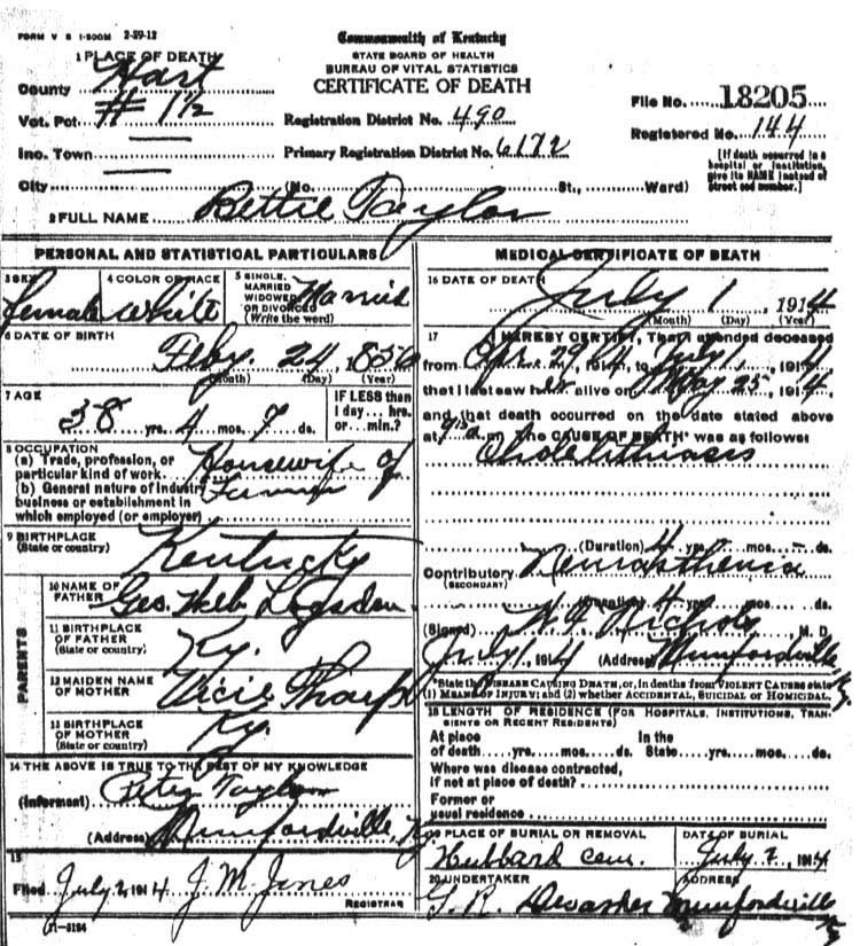 FORM V S 1-500M 2-29-12
Commonwealth of Kentucky
STATE BOARD OF HEALTH
BUREAU OF VITAL STATISTICS
CERTIFICATE OF DEATH
1 PLACE OF DEATH
County Hart
Vot. Pct. # 1½
Registration District No. 490
File No. 18205
Registered No. 144
Inc. Town
Primary Registration District No. 6172
[If death occurred in a hospital or institution, give its NAME instead of street and number.]
City (No. St., Ward)
2 FULL NAME Bettie Taylor
PERSONAL AND STATISTICAL PARTICULARS
3 SEX female
4 COLOR OR RACE White
5 SINGLE, MARRIED WIDOWED OR DIVORCED (Write the word) Married
6 DATE OF BIRTH
Feby. 24, 1856
(Month) (Day) (Year)
7 AGE
58 yrs. 4 mos. 7 ds.
IF LESS than 1 day... hrs. or... min.?
8 OCCUPATION
(a) Trade, profession, or particular kind of work. Housewife of
(b) General nature of industry business or establishment in which employed (or employer)
9 BIRTHPLACE
(State or country) Kentucky
PARENTS
10 NAME OF FATHER Geo. Heb Logsden
11 BIRTHPLACE OF FATHER (State or country) Ky.
12 MAIDEN NAME OF MOTHER Vicie Tharp
13 BIRTHPLACE OF MOTHER (State or country) Ky.
14 THE ABOVE IS TRUE TO THE BEST OF MY KNOWLEDGE
(Informant) Peter Taylor
(Address) Munfordville, Ky
15
Filed July 2, 1914 J. M. Jones
REGISTRAR
11-3184
MEDICAL CERTIFICATE OF DEATH
16 DATE OF DEATH
July 1, 1914
(Month) (Day) (Year)
17 I HEREBY CERTIFY, That I attended deceased
from Apr. 29, 1914, to July 1, 1914,
that I last saw her alive on May 25, 1914,
and that death occurred on the date stated above
at m. The CAUSE OF DEATH* was as follows:
Cholelithiasis
(Duration) 4 yrs. mos. ds.
Contributory Neurasthenia
(SECONDARY)
(Duration) 4 yrs. mos. ds.
(Signed) Nichols M. D.
July 1, 1914 (Address) Munfordville, Ky.
*State the DISEASE CAUSING DEATH, or, in deaths from VIOLENT CAUSES state
(1) MEANS OF INJURY; and (2) whether ACCIDENTAL, SUICIDAL or HOMICIDAL.
18 LENGTH OF RESIDENCE (FOR HOSPITALS, INSTITUTIONS, TRANSIENTS OR RECENT RESIDENTS)
At place of death....yrs....mos....ds. In the State....yrs....mos....ds.
Where was disease contracted,
if not at place of death?
Former or
usual residence
19 PLACE OF BURIAL OR REMOVAL
Hubbard cem.
DATE OF BURIAL
July 2, 1914
20 UNDERTAKER
G. R. Dwasher
ADDRESS
Munfordville Ky